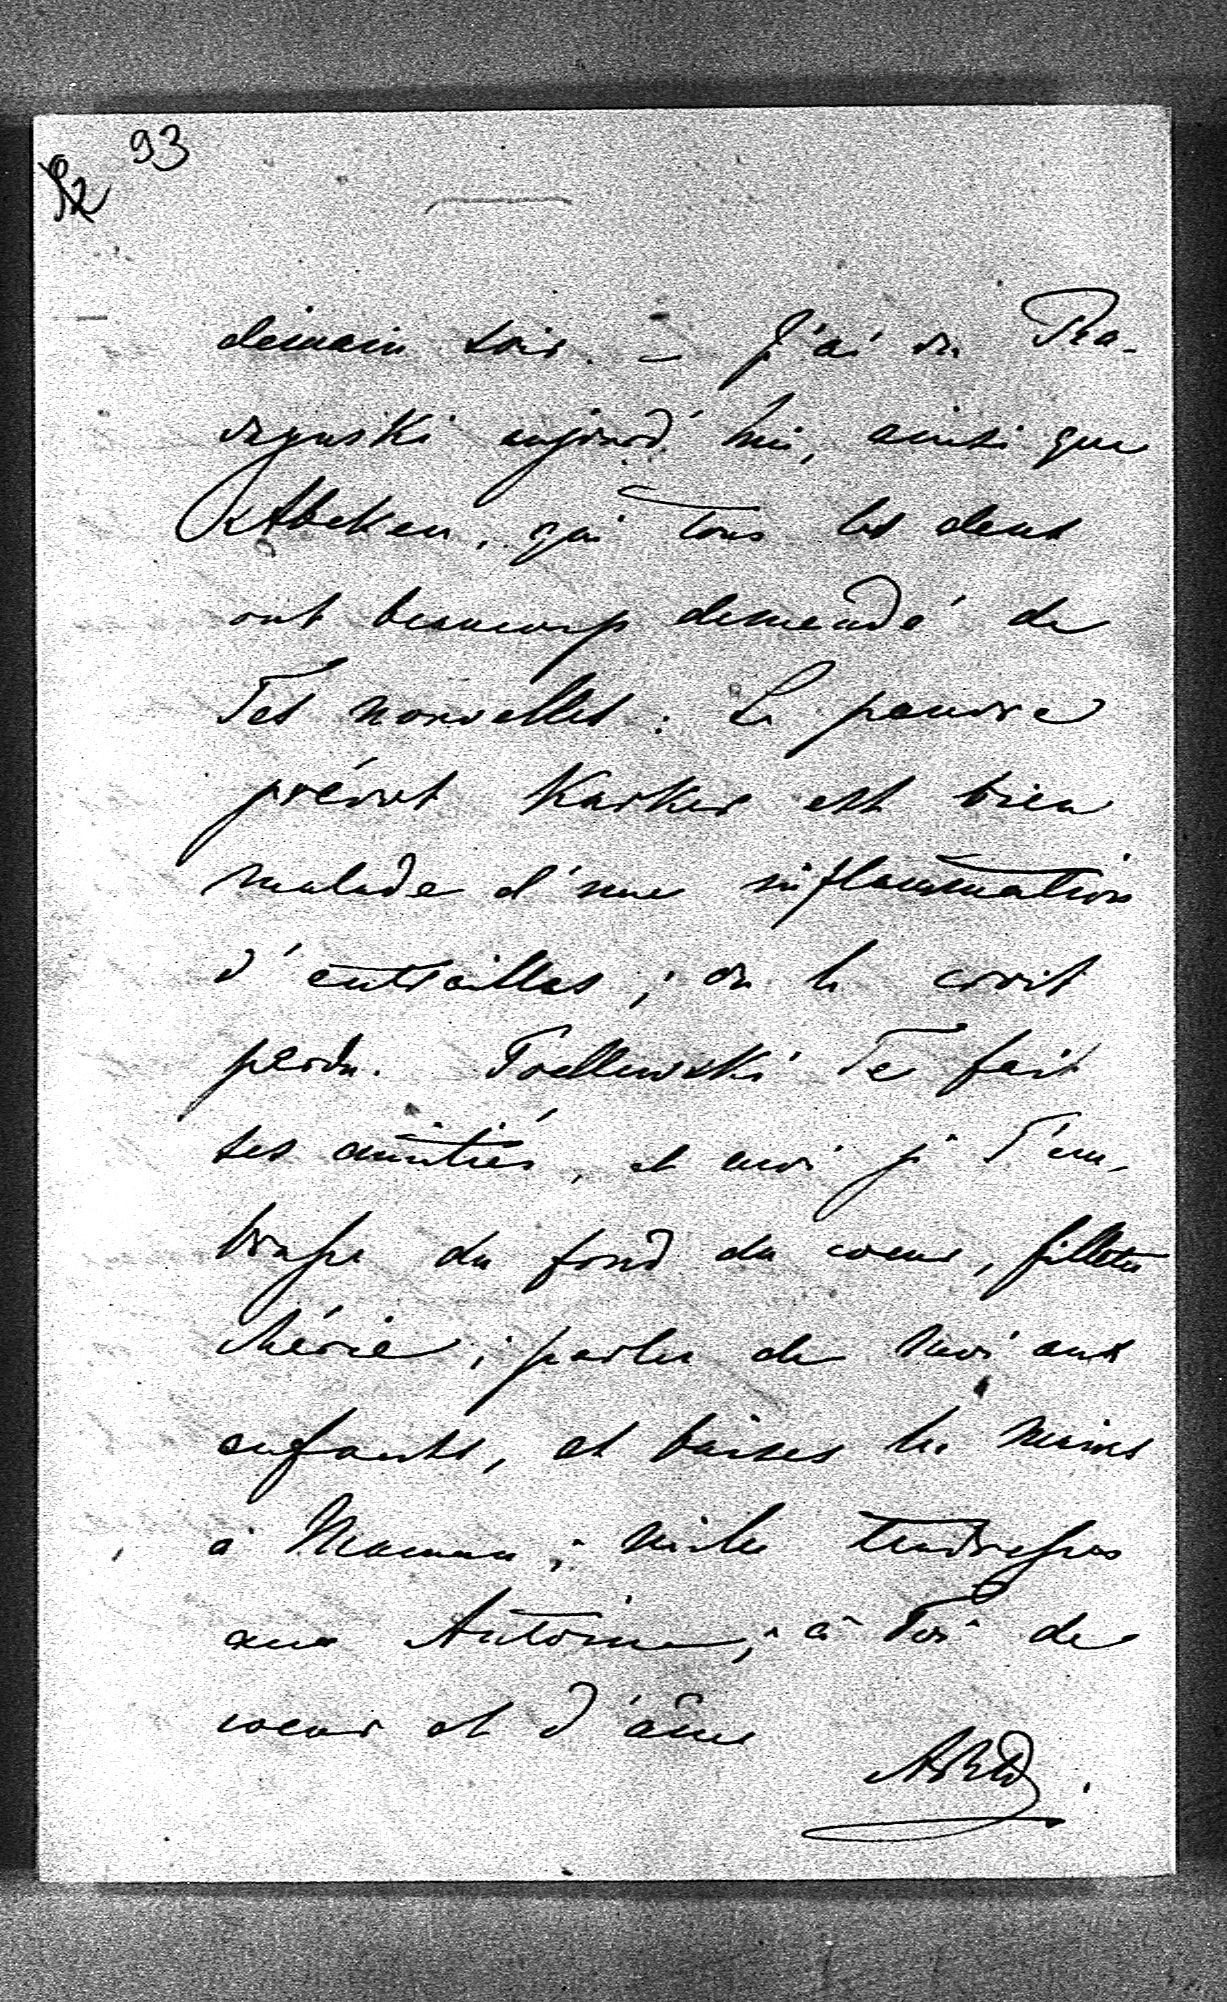 93
92
demain soir. – J'ai vu Ra-
dzynski aujourd'hui, ainsi que
Abeken, qui tous les deux
ont beaucoup demandé de
Tes nouvelles. Le pauvre
prévôt Karker est bien
malade d'une inflammation
d'entrailles; on le croit
perdu. Toellewski Te fait
ses amitiés, et moi je T'em-
brasse du fond du coeur, fillette
chérie; parles de moi aux
enfants, et baises les mains
à Maman; mille tendresses
aux Antoine; à Toi de
coeur et d'âme